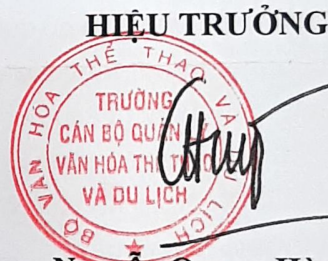 HIỆU TRƯỞNG
BỘ VĂN HÓA THỂ THAO VÀ DU LỊCH
TRƯỜNG
CÁN BỘ QUẢN LÝ
VĂN HÓA THỂ THAO
VÀ DU LỊCH